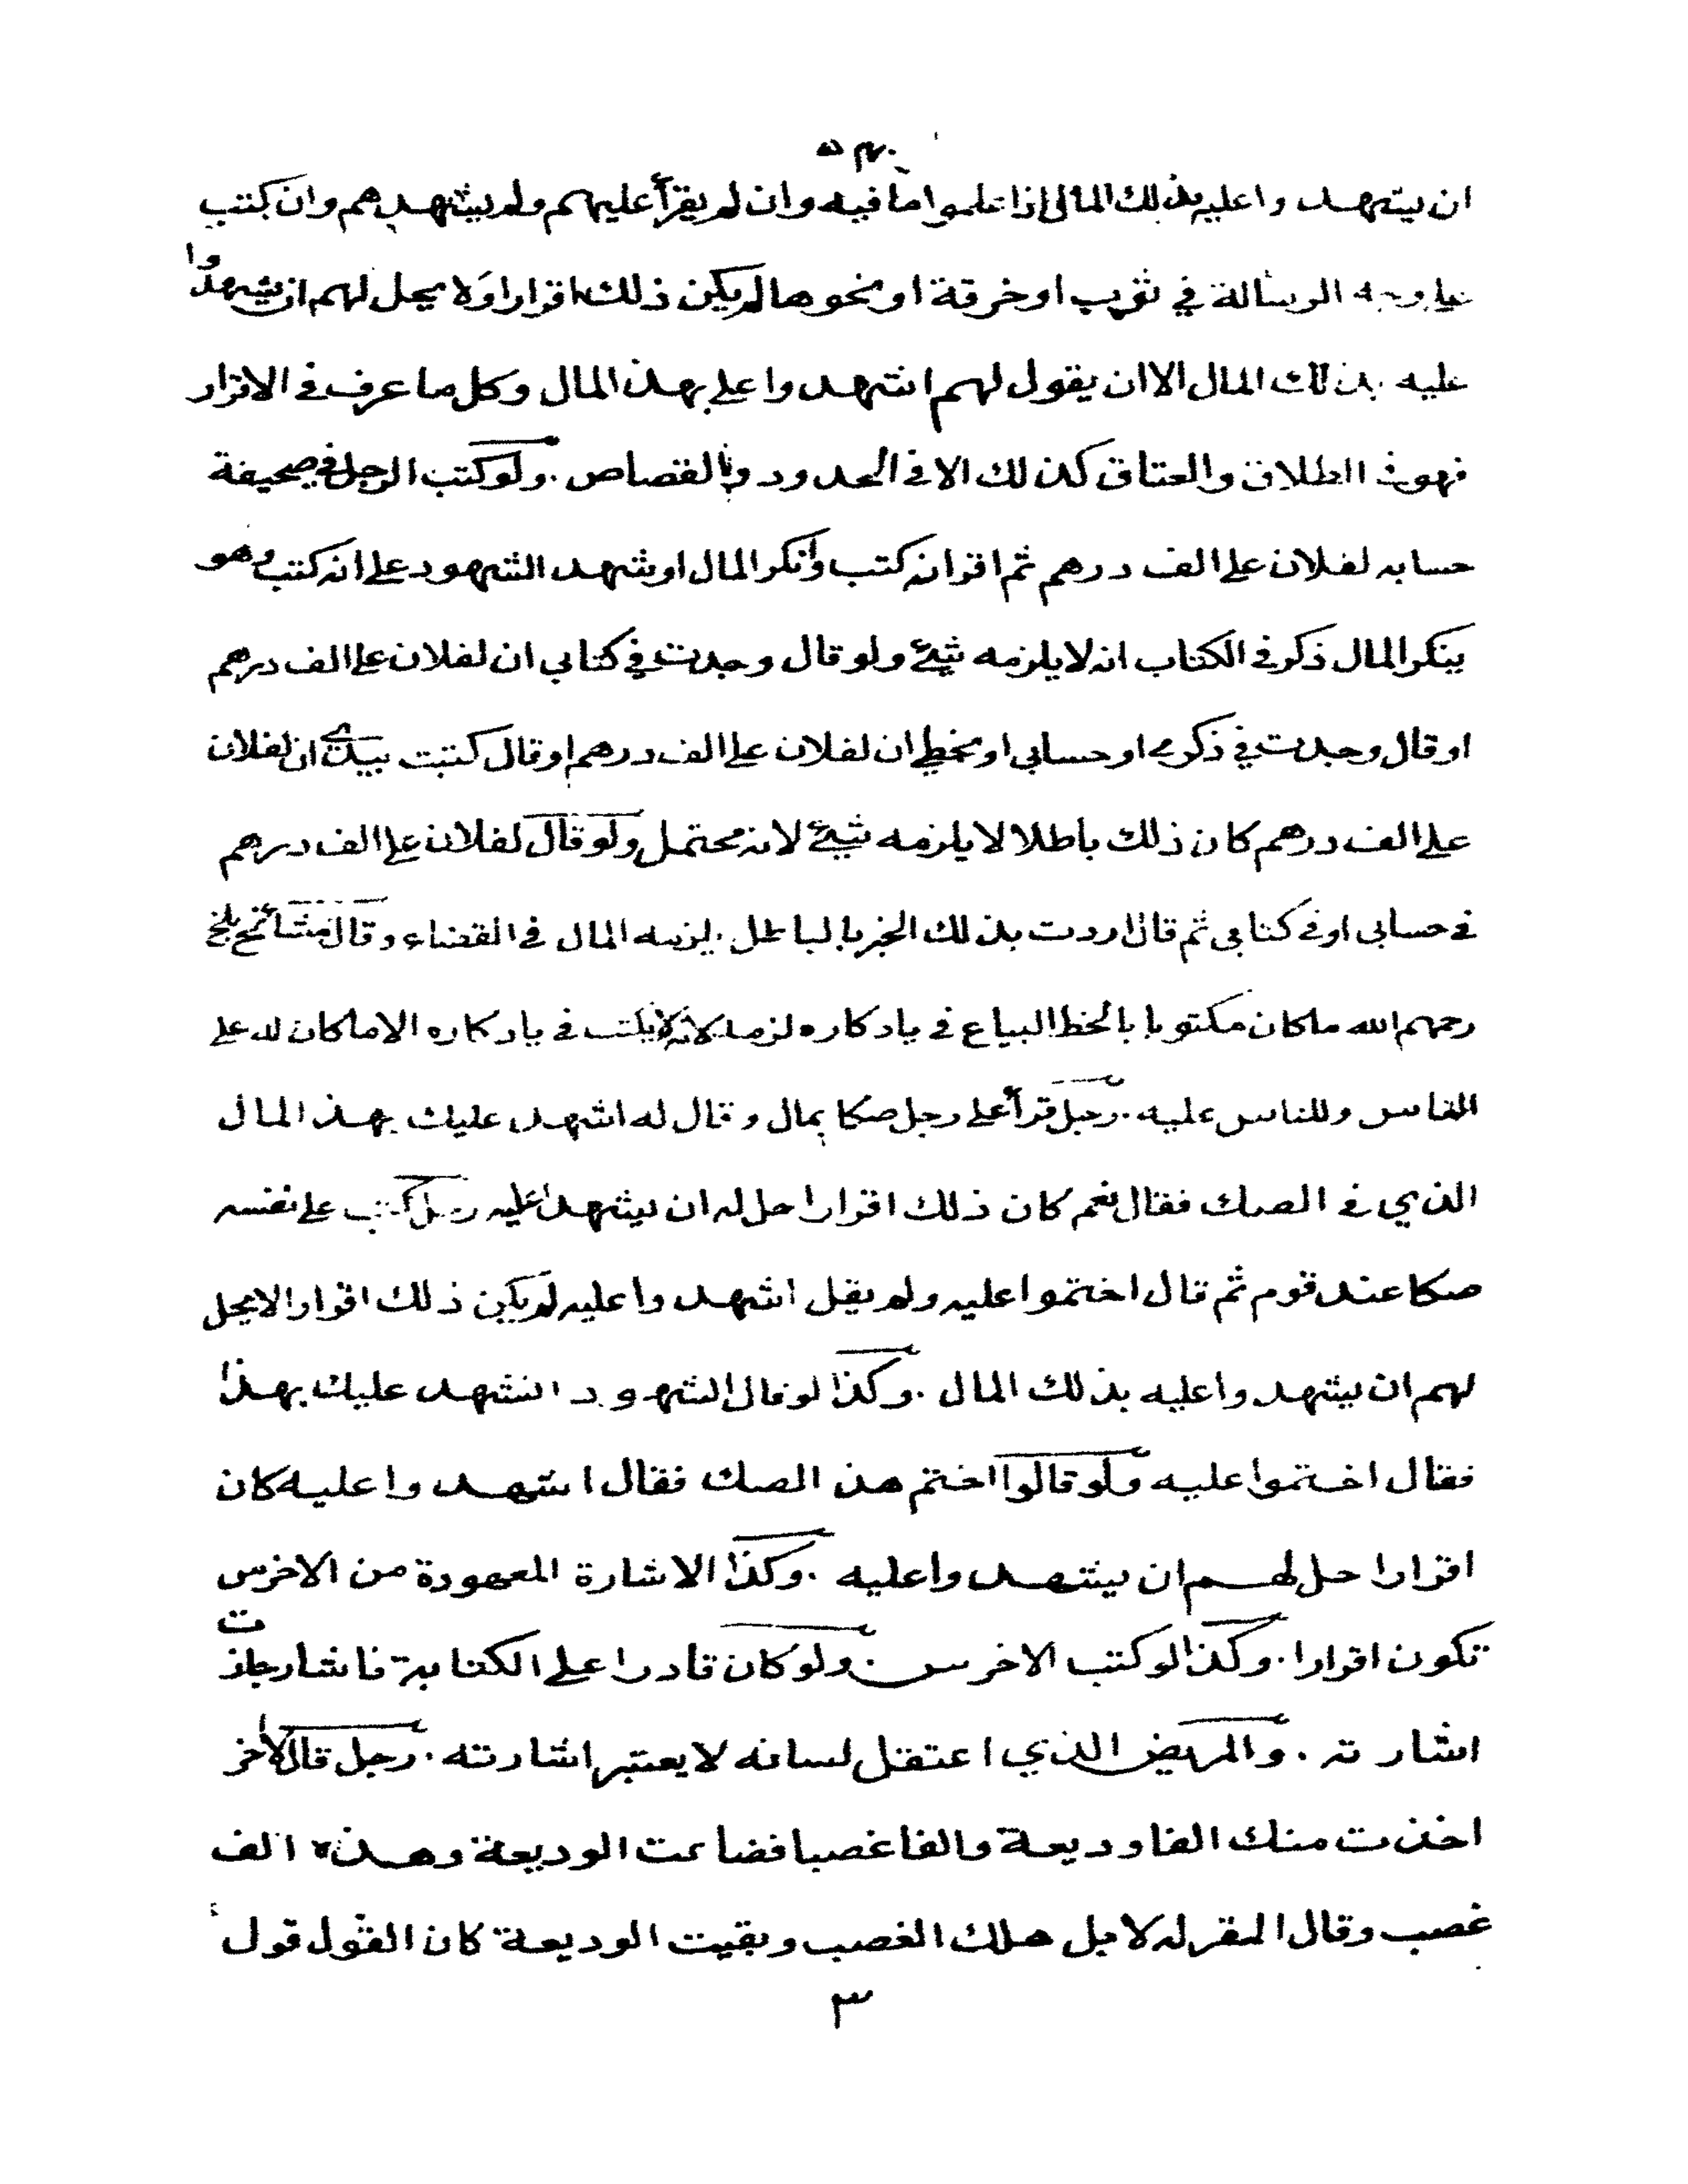 ان يشهدوا عليه بذلك المال اذا علموا ما فيه وان لم يقرأ عليهم ولم يشهدهم وان كتب
على وجه الرسالة في ثوب او خرقة او نحوها لم يكن ذلك اقرارا ولا يحل لهم ان يشهدوا
عليه بذلك المال الا ان يقول لهم اشهدوا علي بهذا المال وكل ما عرف في الاقرار
فهو في الطلاق والعتاق كذلك الا في الحدود والقصاص . ولو كتب الرجل في صحيفة
حسابه لفلان علي الف درهم ثم اقر انه كتب وأنكر المال او شهد الشهود على انه كتب وهو
ينكر المال ذكر في الكتاب انه لا يلزمه شيئ ولو قال وجدت في كتابي ان لفلان علي الف درهم
او قال وجدت في ذكري او حسابي او بخطي ان لفلان علي الف درهم او قال كتبت بيدي ان لفلان
علي الف درهم كان ذلك باطلا لا يلزمه شيئ لانه محتمل ولو قال لفلان علي الف درهم
في حسابي او في كتابي ثم قال اردت بذلك الخبر بالباطل يلزمه المال في القضاء وقال مشائخ بلخ
رحمهم الله ما كان مكتوبا بالخط البياع في يادكاره لزمه لانه لا يكتب في يادكاره الا ما كان له على
الناس وللناس عليه . رجل قرأ على رجل صكا بمال وقال له اشهد عليك بهذ المال
الذي في الصك فقال نعم كان ذلك اقرارا حل له ان يشهد عليه رجل كتب على نفسه
صكا عند قوم ثم قال اختموا عليه ولم يقل اشهدوا عليه لم يكن ذلك اقرارا لا يحل
لهم ان يشهدوا عليه بذلك المال . وكذا لو قال الشهود انشهد عليك بهذا
فقال اختموا عليه ولو قالوا اختم هذ الصك فقال اشهدوا عليه كان
اقرارا حل لهم ان يشهدوا عليه . وكذا الاشارة المعهودة من الاخرس
تكون اقرارا . وكذا لو كتب الاخرس . ولو كان قادرا على الكتابة فاشار جازت
اشارته . والمريض الذي اعتقل لسانه لا يعتبر اشارته . رجل قال لاخر
اخذت منك الفا وديعة والفا غصبا فضاعت الوديعة وهذه الف
غصب وقال المقر له لا بل هلك الغصب وبقيت الوديعة كان القول قول
٣